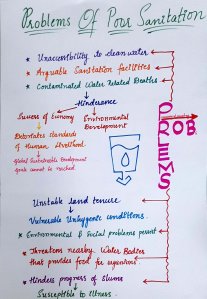 Problems Of Poor Sanitation
* Unaccessibility to clean water
* Arguable Sanitation facilities
* Contaminated Water Related Deaths
Hinderance
Success of Economy
Environmental Development
Deteriorates standards of Human livelihood
Global Sustainable Development Goals cannot be reached.
PROBLEMS
Unstable land tenure
Vulnerable Unhygenic conditions.
* Environmental & Social problems persist
* Threatens nearby Water Bodies
that provides food for
* Hinders progress of Slums
Susceptible to Illness.